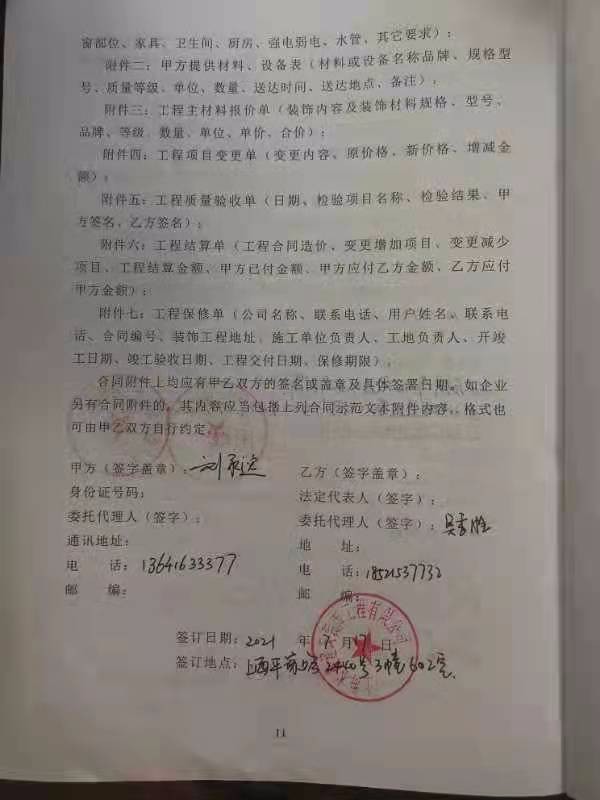 窗部位、家具、卫生间、厨房、强电弱电、水管、其它要求）；
附件二：甲方提供材料、设备表（材料或设备名称品牌、规格型
号、质量等级、单位、数量、送达时间、送达地点、备注）；
附件三：工程主材料报价单（装饰内容及装饰材料规格、型号、
品牌、等级、数量、单位、单价、合价）；
附件四：工程项目变更单（变更内容、原价格、新价格、增减金
额）；
附件五：工程质量验收单（日期、检验项目名称、检验结果、甲
方签名、乙方签名）；
附件六：工程结算单（工程合同造价、变更增加项目、变更减少
项目、工程结算金额、甲方已付金额、甲方应付乙方金额、乙方应付
甲方金额）；
附件七：工程保修单（公司名称、联系电话、用户姓名、联系电
话、合同编号、装饰工程地址、施工单位负责人、工地负责人、开竣
工日期、竣工验收日期、工程交付日期、保修期限）。
合同附件上均应有甲乙双方的签名或盖章及具体签署日期。如企业
另有合同附件的，其内容应当包括上列合同示范文本附件内容，格式也
可由甲乙双方自行约定。
甲方（签字盖章）：刘
乙方（签字盖章）：
身份证号码：
法定代表人（签字）：
委托代理人（签字）：
委托代理人（签字）：吴
通讯地址：
地 址：
电 话：13641633377
电 话：18521537732
邮 编：
邮 编：
签订日期：2021 年 7 月 日
签订地点： 2440号3幢602室
工程有限公司
11